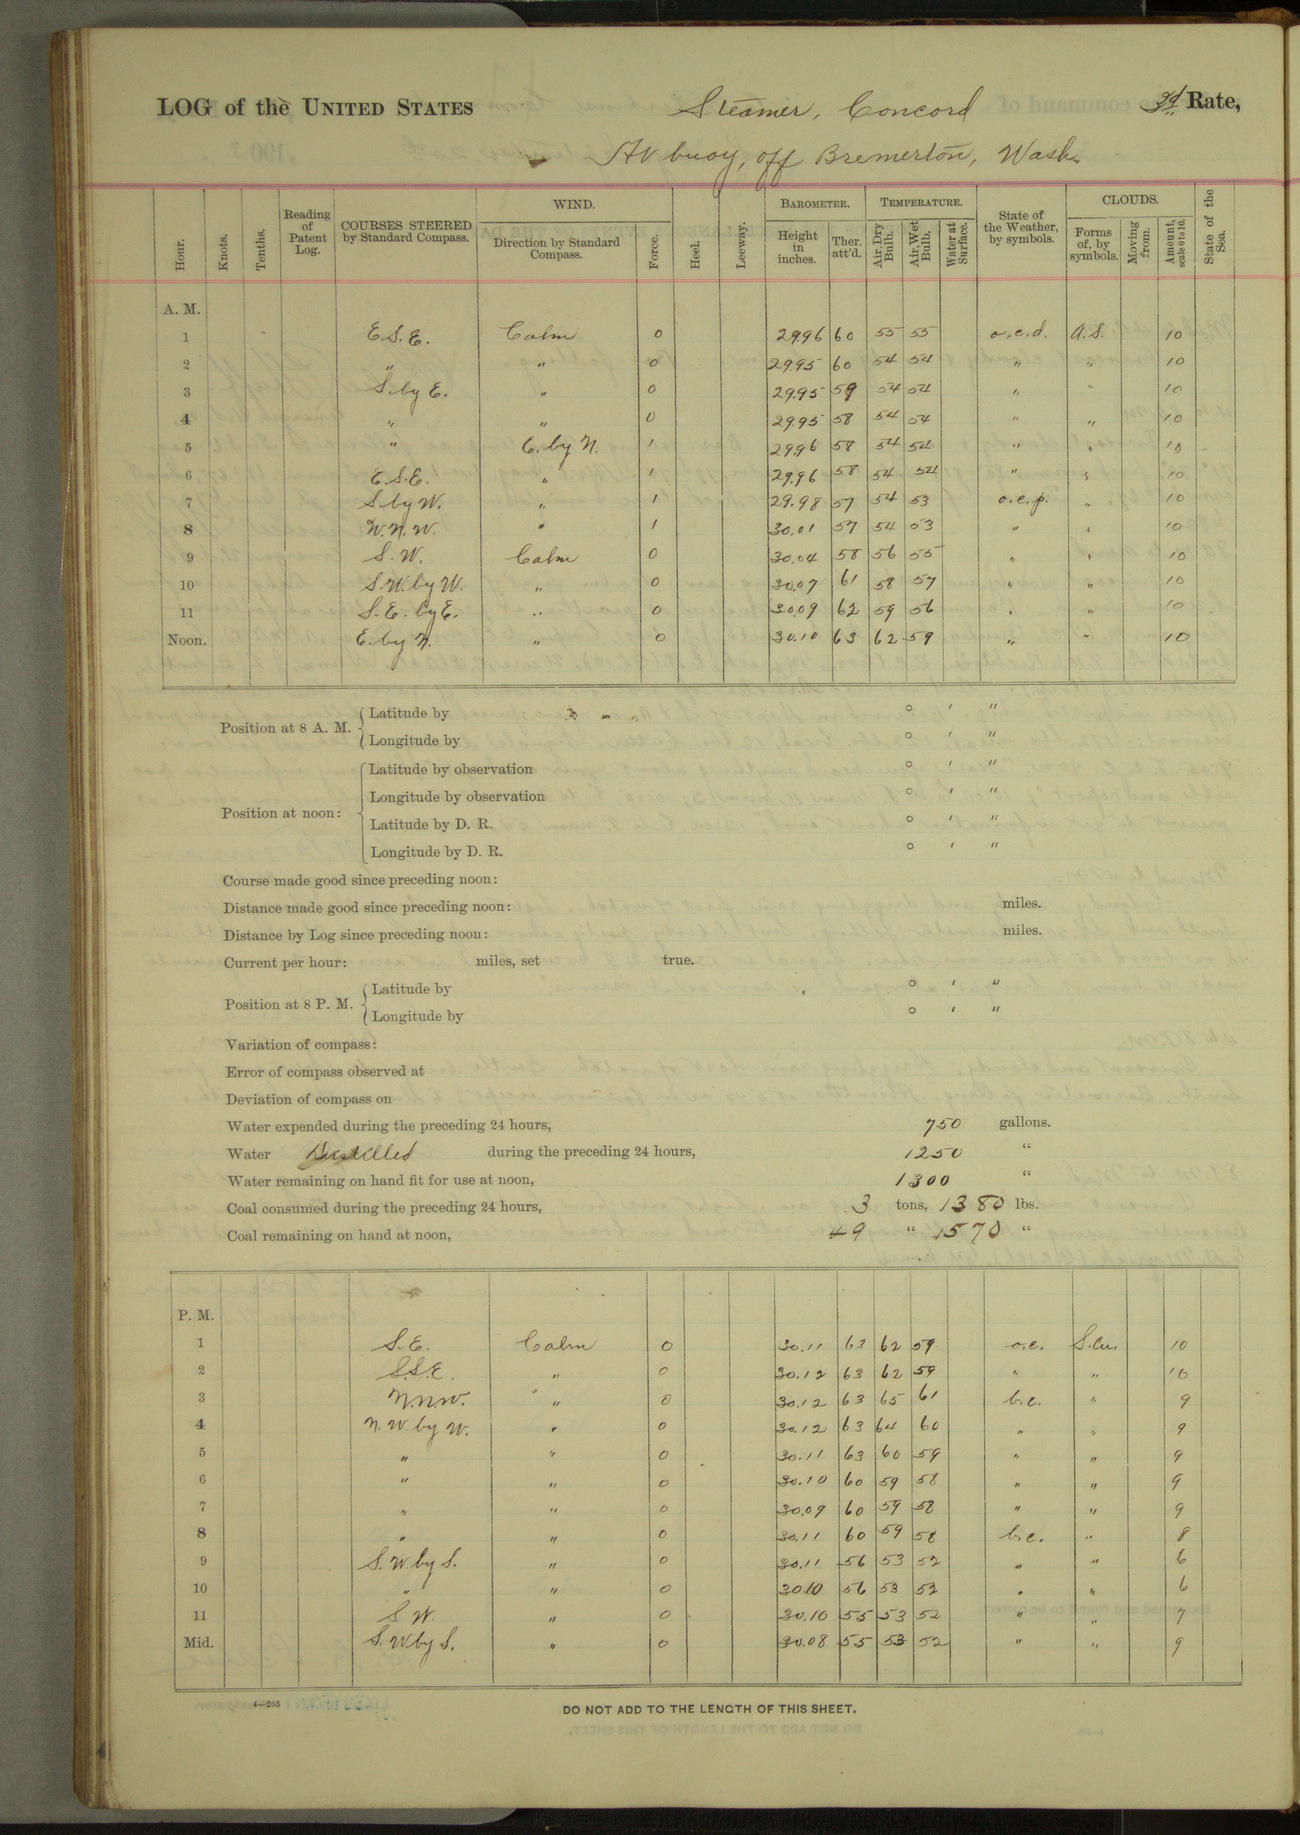 LOG of the UNITED STATES Steamer, Concord 3d Rate,
At buoy, off Bremerton, Wash.
Hour. Knots. Tenths. Reading of Patent Log. COURSES STEERED by Standard Compass. WIND. Direction by Standard Compass. Force. Heel. Leeway. BAROMETER. Height in inches. Ther. att'd. TEMPERATURE. Air, Dry Bulb. Air, Wet Bulb. Water at Surface. State of the Weather, by symbols. CLOUDS. Forms of, by symbols. Moving from. Amount, scale 0 to 10. State of the Sea.
A. M.
1 E.S.E. Calm 0 29.96 60 55 55 o.c.d. A.S. 10
2 " " 0 29.95 60 54 54 " " 10
3 S. by E. " 0 29.95 59 54 54 " " 10
4 " " 0 29.95 58 54 54 " " 10
5 " E. by N. 1 29.96 58 54 54 " " 10
6 E.S.E. " 1 29.96 58 54 54 " " 10
7 S. by W. " 1 29.98 57 54 53 o.c.p. " 10
8 W.N.W. " 1 30.01 57 54 53 " " 10
9 S.W. Calm 0 30.04 58 56 55 " " 10
10 S.W. by W. " 0 30.07 61 58 57 " " 10
11 S.E. by E. " 0 30.09 62 59 56 " " 10
Noon. E. by N. " 0 30.10 63 62 59 " " 10
Position at 8 A. M. Latitude by ° ′ ″
Longitude by ° ′ ″
Position at noon: Latitude by observation ° ′ ″
Longitude by observation ° ′ ″
Latitude by D. R. ° ′ ″
Longitude by D. R. ° ′ ″
Course made good since preceding noon:
Distance made good since preceding noon: miles.
Distance by Log since preceding noon: miles.
Current per hour: miles, set true.
Position at 8 P. M. Latitude by ° ′ ″
Longitude by ° ′ ″
Variation of compass:
Error of compass observed at
Deviation of compass on
Water expended during the preceding 24 hours, 750 gallons.
Water Distilled during the preceding 24 hours, 1250 "
Water remaining on hand fit for use at noon, 1300 "
Coal consumed during the preceding 24 hours, 3 tons, 1380 lbs.
Coal remaining on hand at noon, 49 " 1570 "
P. M.
1 S.E. Calm 0 30.11 63 62 59 o.c. S.Cu. 10
2 S.S.E. " 0 30.12 63 62 59 " " 10
3 N.N.W. " 0 30.12 63 65 61 b.c. " 9
4 N.W. by W. " 0 30.12 63 64 60 " " 9
5 " " 0 30.11 63 60 59 " " 9
6 " " 0 30.10 60 59 58 " " 9
7 " " 0 30.09 60 59 58 " " 9
8 " " 0 30.11 60 59 58 b.c. " 8
9 S.W. by S. " 0 30.11 56 53 52 " " 6
10 " " 0 30.10 56 53 52 " " 6
11 S.W. " 0 30.10 55 53 52 " " 7
Mid. S.W by S. " 0 30.08 55 53 52 " " 9
4—265
DO NOT ADD TO THE LENGTH OF THIS SHEET.